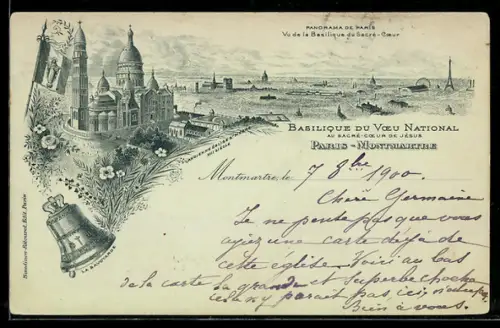 PANORAMA DE PARIS
Vu de la Basilique du Sacré-Cœur
BASILIQUE DU VŒU NATIONAL
AU SACRÉ-CŒUR DE JÉSUS
PARIS-MONTMARTRE
Montmartre, le 7 8bre 1900.
Chère Germaine
Je ne pense pas que vous
ayiez une carte déjà de
cette église. Voici au bas
de la carte la grande et superbe
cela n'y paraît pas, ici,
Bien à vous.
LA SAVOYARDE